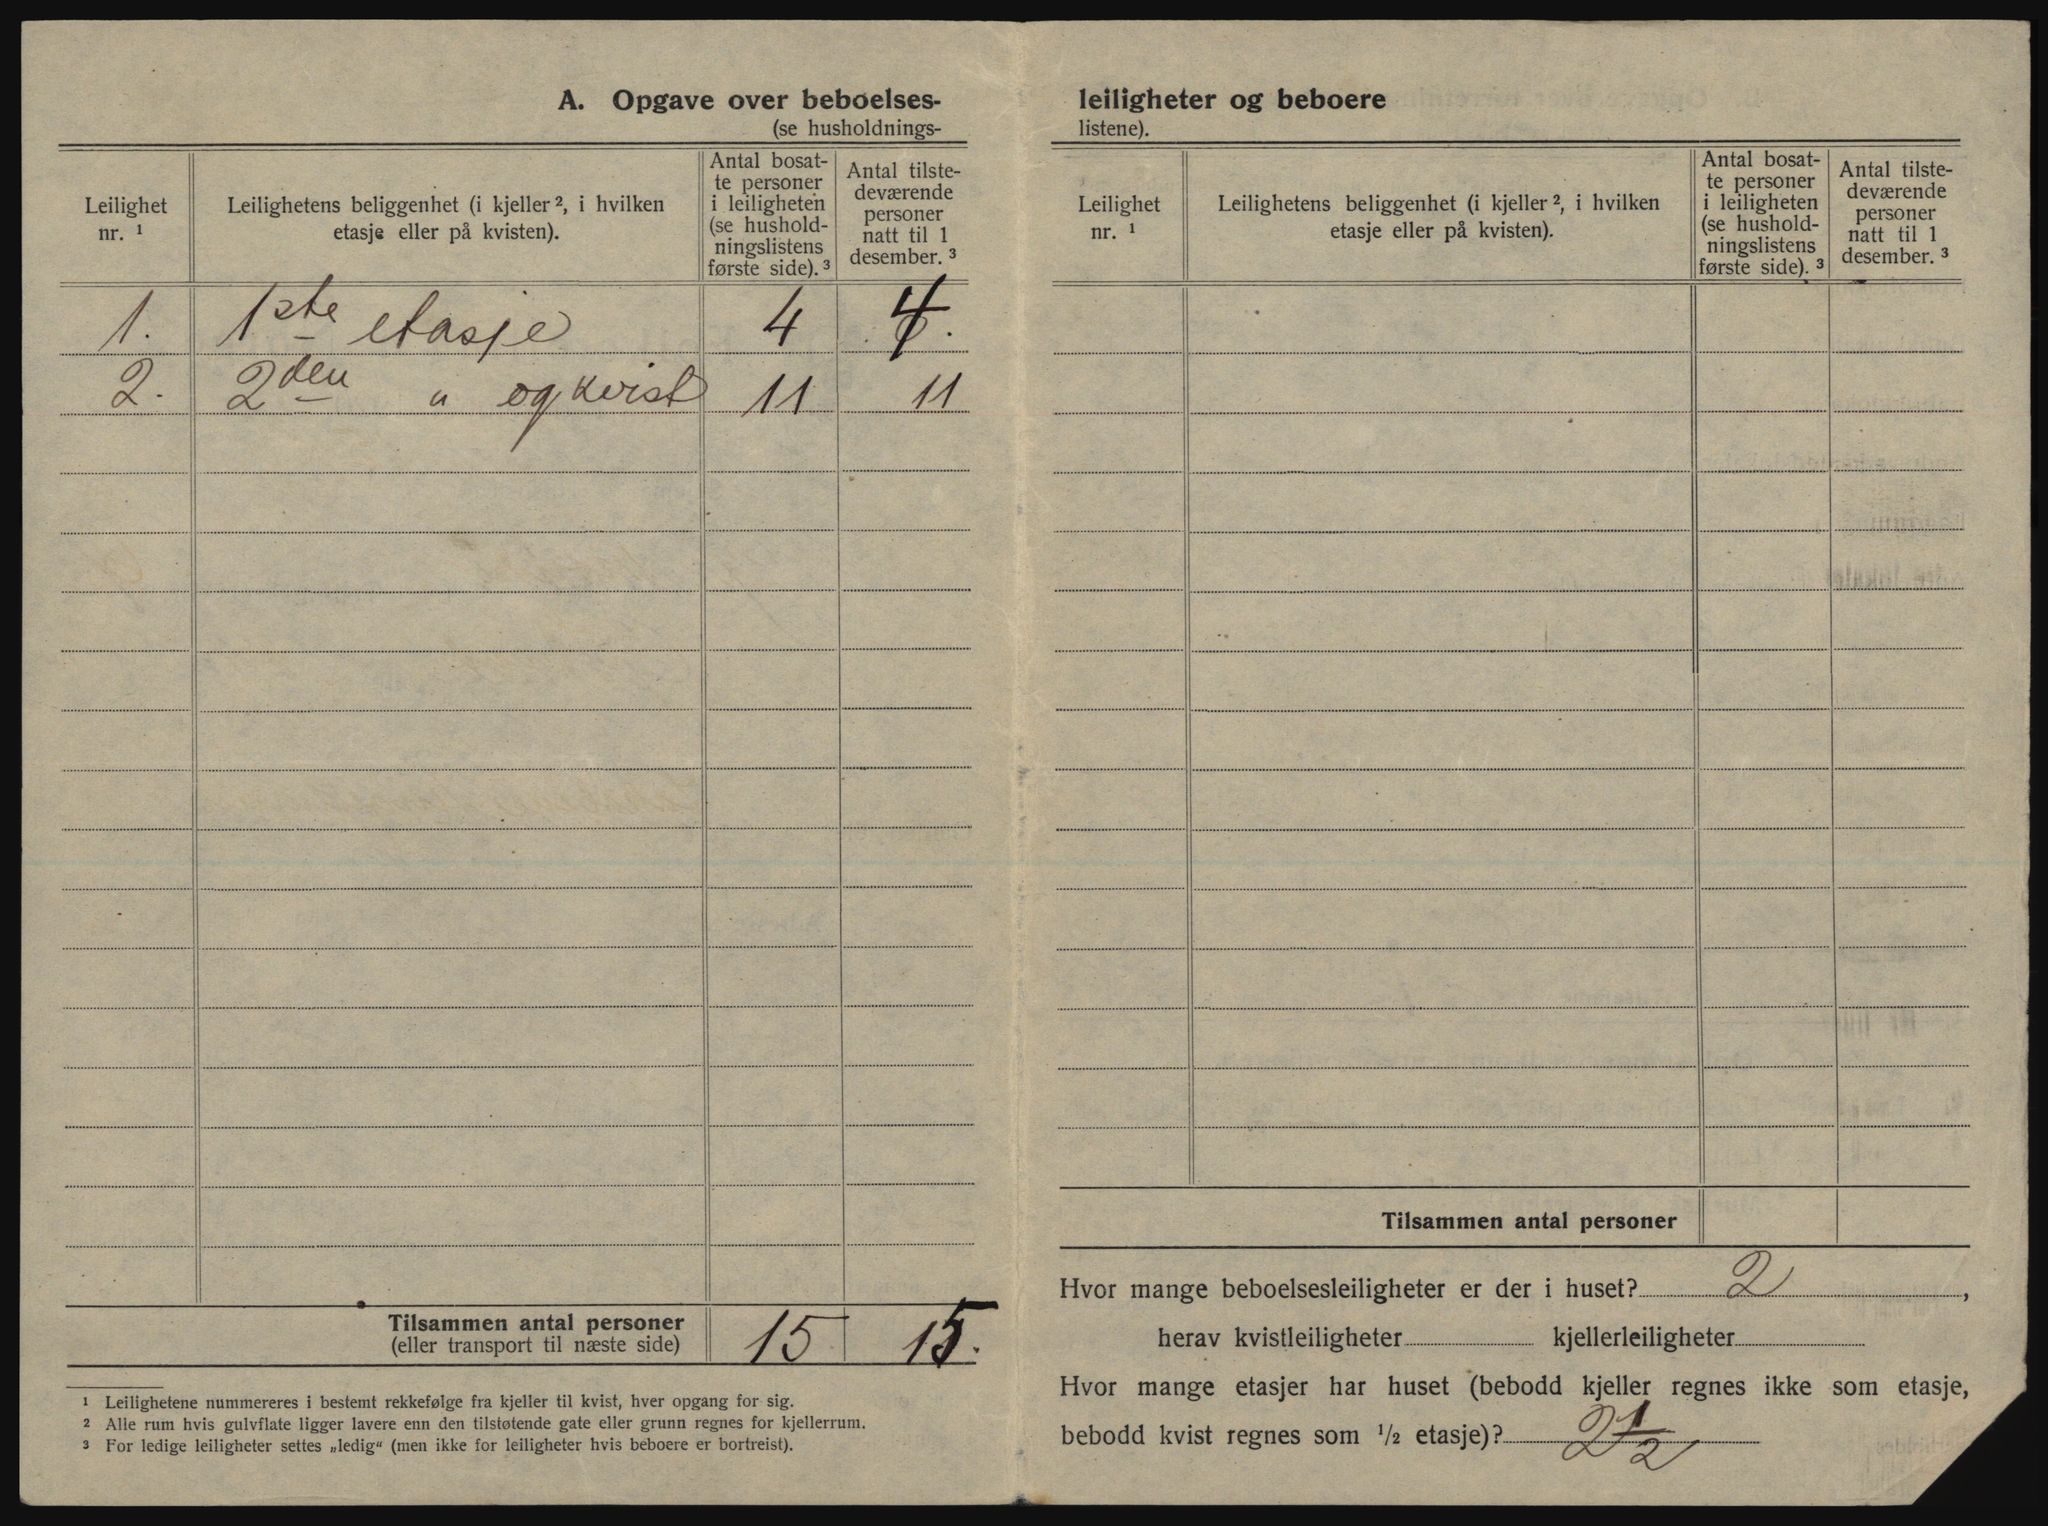 A. Opgave over beboelses-
(se husholdnings-
Leilighet nr. ¹
Leilighetens beliggenhet (i kjeller ², i hvilken
etasje eller på kvisten).
Antal bosat-
te personer
i leiligheten
(se hushold-
ningslistens
første side). ³
Antal tilste-
deværende
personer
natt til 1
desember. ³
1. 1ste etasje 4 4.
2. 2den " og kvist 11 11
Tilsammen antal personer 15 15.
(eller transport til næste side)
¹ Leilighetene nummereres i bestemt rekkefølge fra kjeller til kvist, hver opgang for sig.
² Alle rum hvis gulvflate ligger lavere enn den tilstøtende gate eller grunn regnes for kjellerrum.
³ For ledige leiligheter settes „ledig“ (men ikke for leiligheter hvis beboere er bortreist).
leiligheter og beboere
listene).
Leilighet
nr. ¹
Leilighetens beliggenhet (i kjeller ², i hvilken
etasje eller på kvisten).
Antal bosat-
te personer
i leiligheten
(se hushold-
ningslistens
første side). ³
Antal tilste-
deværende
personer
natt til 1
desember. ³
Tilsammen antal personer
Hvor mange beboelsesleiligheter er der i huset? 2,
herav kvistleiligheter kjellerleiligheter
Hvor mange etasjer har huset (bebodd kjeller regnes ikke som etasje,
bebodd kvist regnes som ½ etasje)? 2 ½